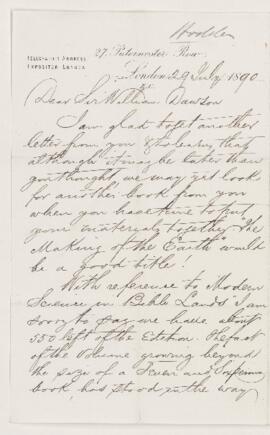 Hodder
27, Paternoster Row,
TELEGRAPHIC ADDRESS
EXPOSITOR LONDON.
London 29 July 1890
Dear Sir William Dawson
I am glad to get another
letter from you & to learn that
although it may be later than
you thought, we may yet look
for another book from you
when you have time to put
your materials together. "The
Making of the Earth" would
be a good title!
With reference to Modern
Science in Bible Lands I am
sorry to say we have about
550 left of the Edition. The fact
of the volume growing beyond
the size of a Seven and Sixpenny
book, has stood in the way